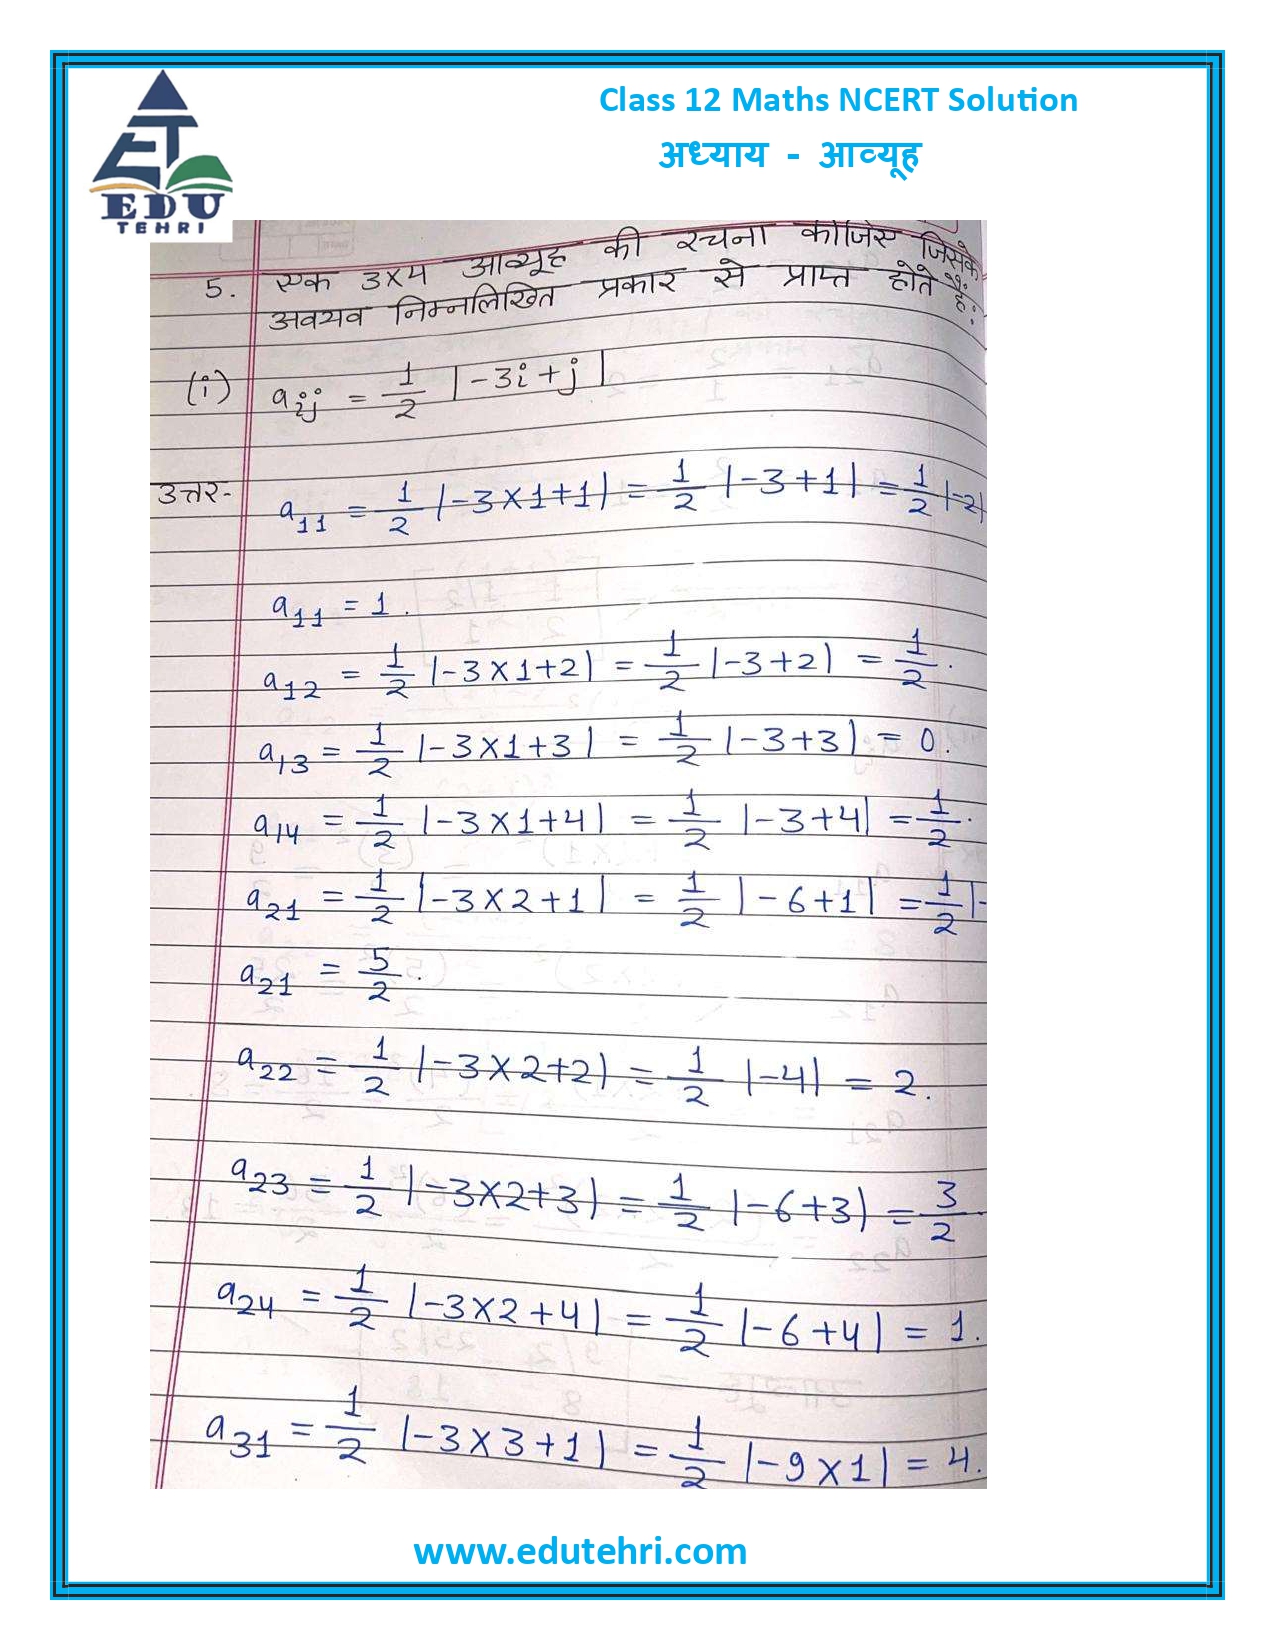 Class 12 Maths NCERT Solution
अध्याय - आव्यूह
EDU
TEHRI
5. एक 3×4 आव्यूह की रचना कीजिए जिसके
अवयव निम्नलिखित प्रकार से प्राप्त होते हैं:
(i) aij = 1/2 |-3i+j|
उत्तर- a11 = 1/2 |-3×1+1| = 1/2 |-3+1| = 1/2 |-2|
a11 = 1.
a12 = 1/2 |-3×1+2| = 1/2 |-3+2| = 1/2.
a13 = 1/2 |-3×1+3| = 1/2 |-3+3| = 0.
a14 = 1/2 |-3×1+4| = 1/2 |-3+4| = 1/2.
a21 = 1/2 |-3×2+1| = 1/2 |-6+1| = 1/2 |-
a21 = 5/2.
a22 = 1/2 |-3×2+2| = 1/2 |-4| = 2.
a23 = 1/2 |-3×2+3| = 1/2 |-6+3| = 3/2
a24 = 1/2 |-3×2+4| = 1/2 |-6+4| = 1.
a31 = 1/2 |-3×3+1| = 1/2 |-9×1| = 4.
www.edutehri.com